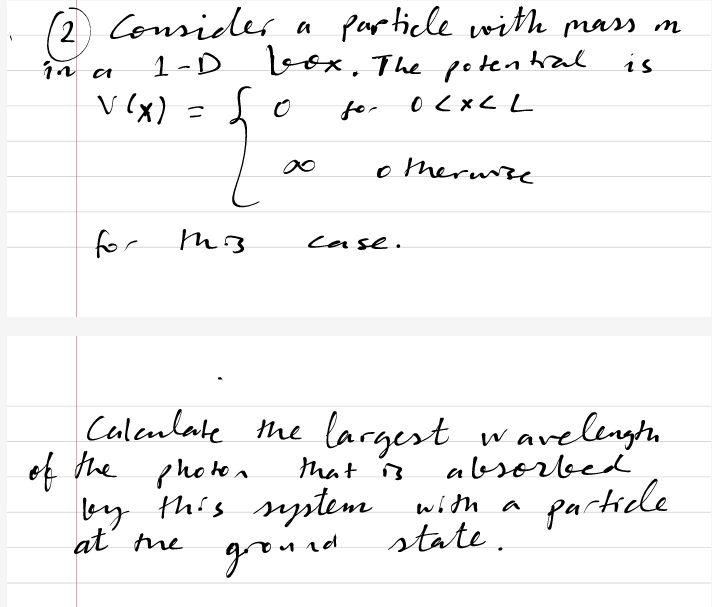 (2) Consider a particle with mass m
in a 1-D box. The potential is
V(x) = { 0 for 0<x<L
∞ otherwise
for this case.
Calculate the largest wavelength
of the photon that is absorbed
by this system with a particle
at the ground state.